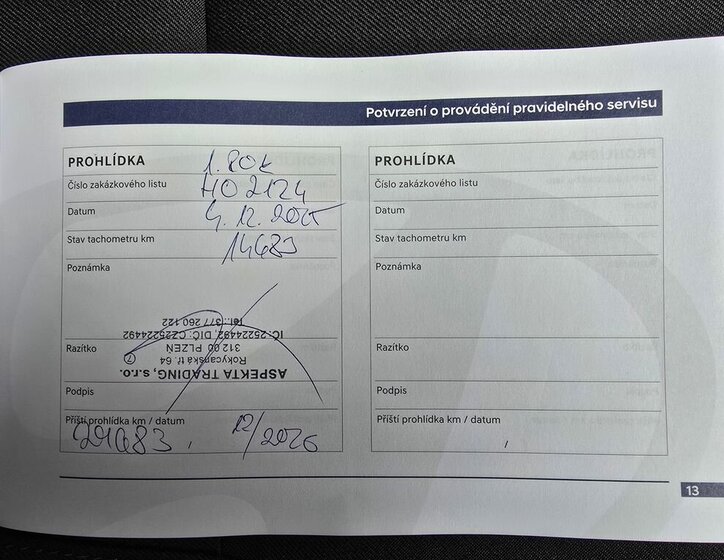 Potvrzení o provádění pravidelného servisu
PROHLÍDKA 1. ROK
Číslo zakázkového listu HO2124
Datum 4. 12. 2025
Stav tachometru km 14683
Poznámka
Razítko
ASPEKTA TRADING, s.r.o.
Rokycanská tř. 64
312 00 PLZEŇ
IČ: 25224492, DIČ: CZ25224492
Tel.: 377 260 122
7
Podpis
Příští prohlídka km / datum
29683 / 12/2026
PROHLÍDKA
Číslo zakázkového listu
Datum
Stav tachometru km
Poznámka
Razítko
Podpis
Příští prohlídka km / datum
/
13